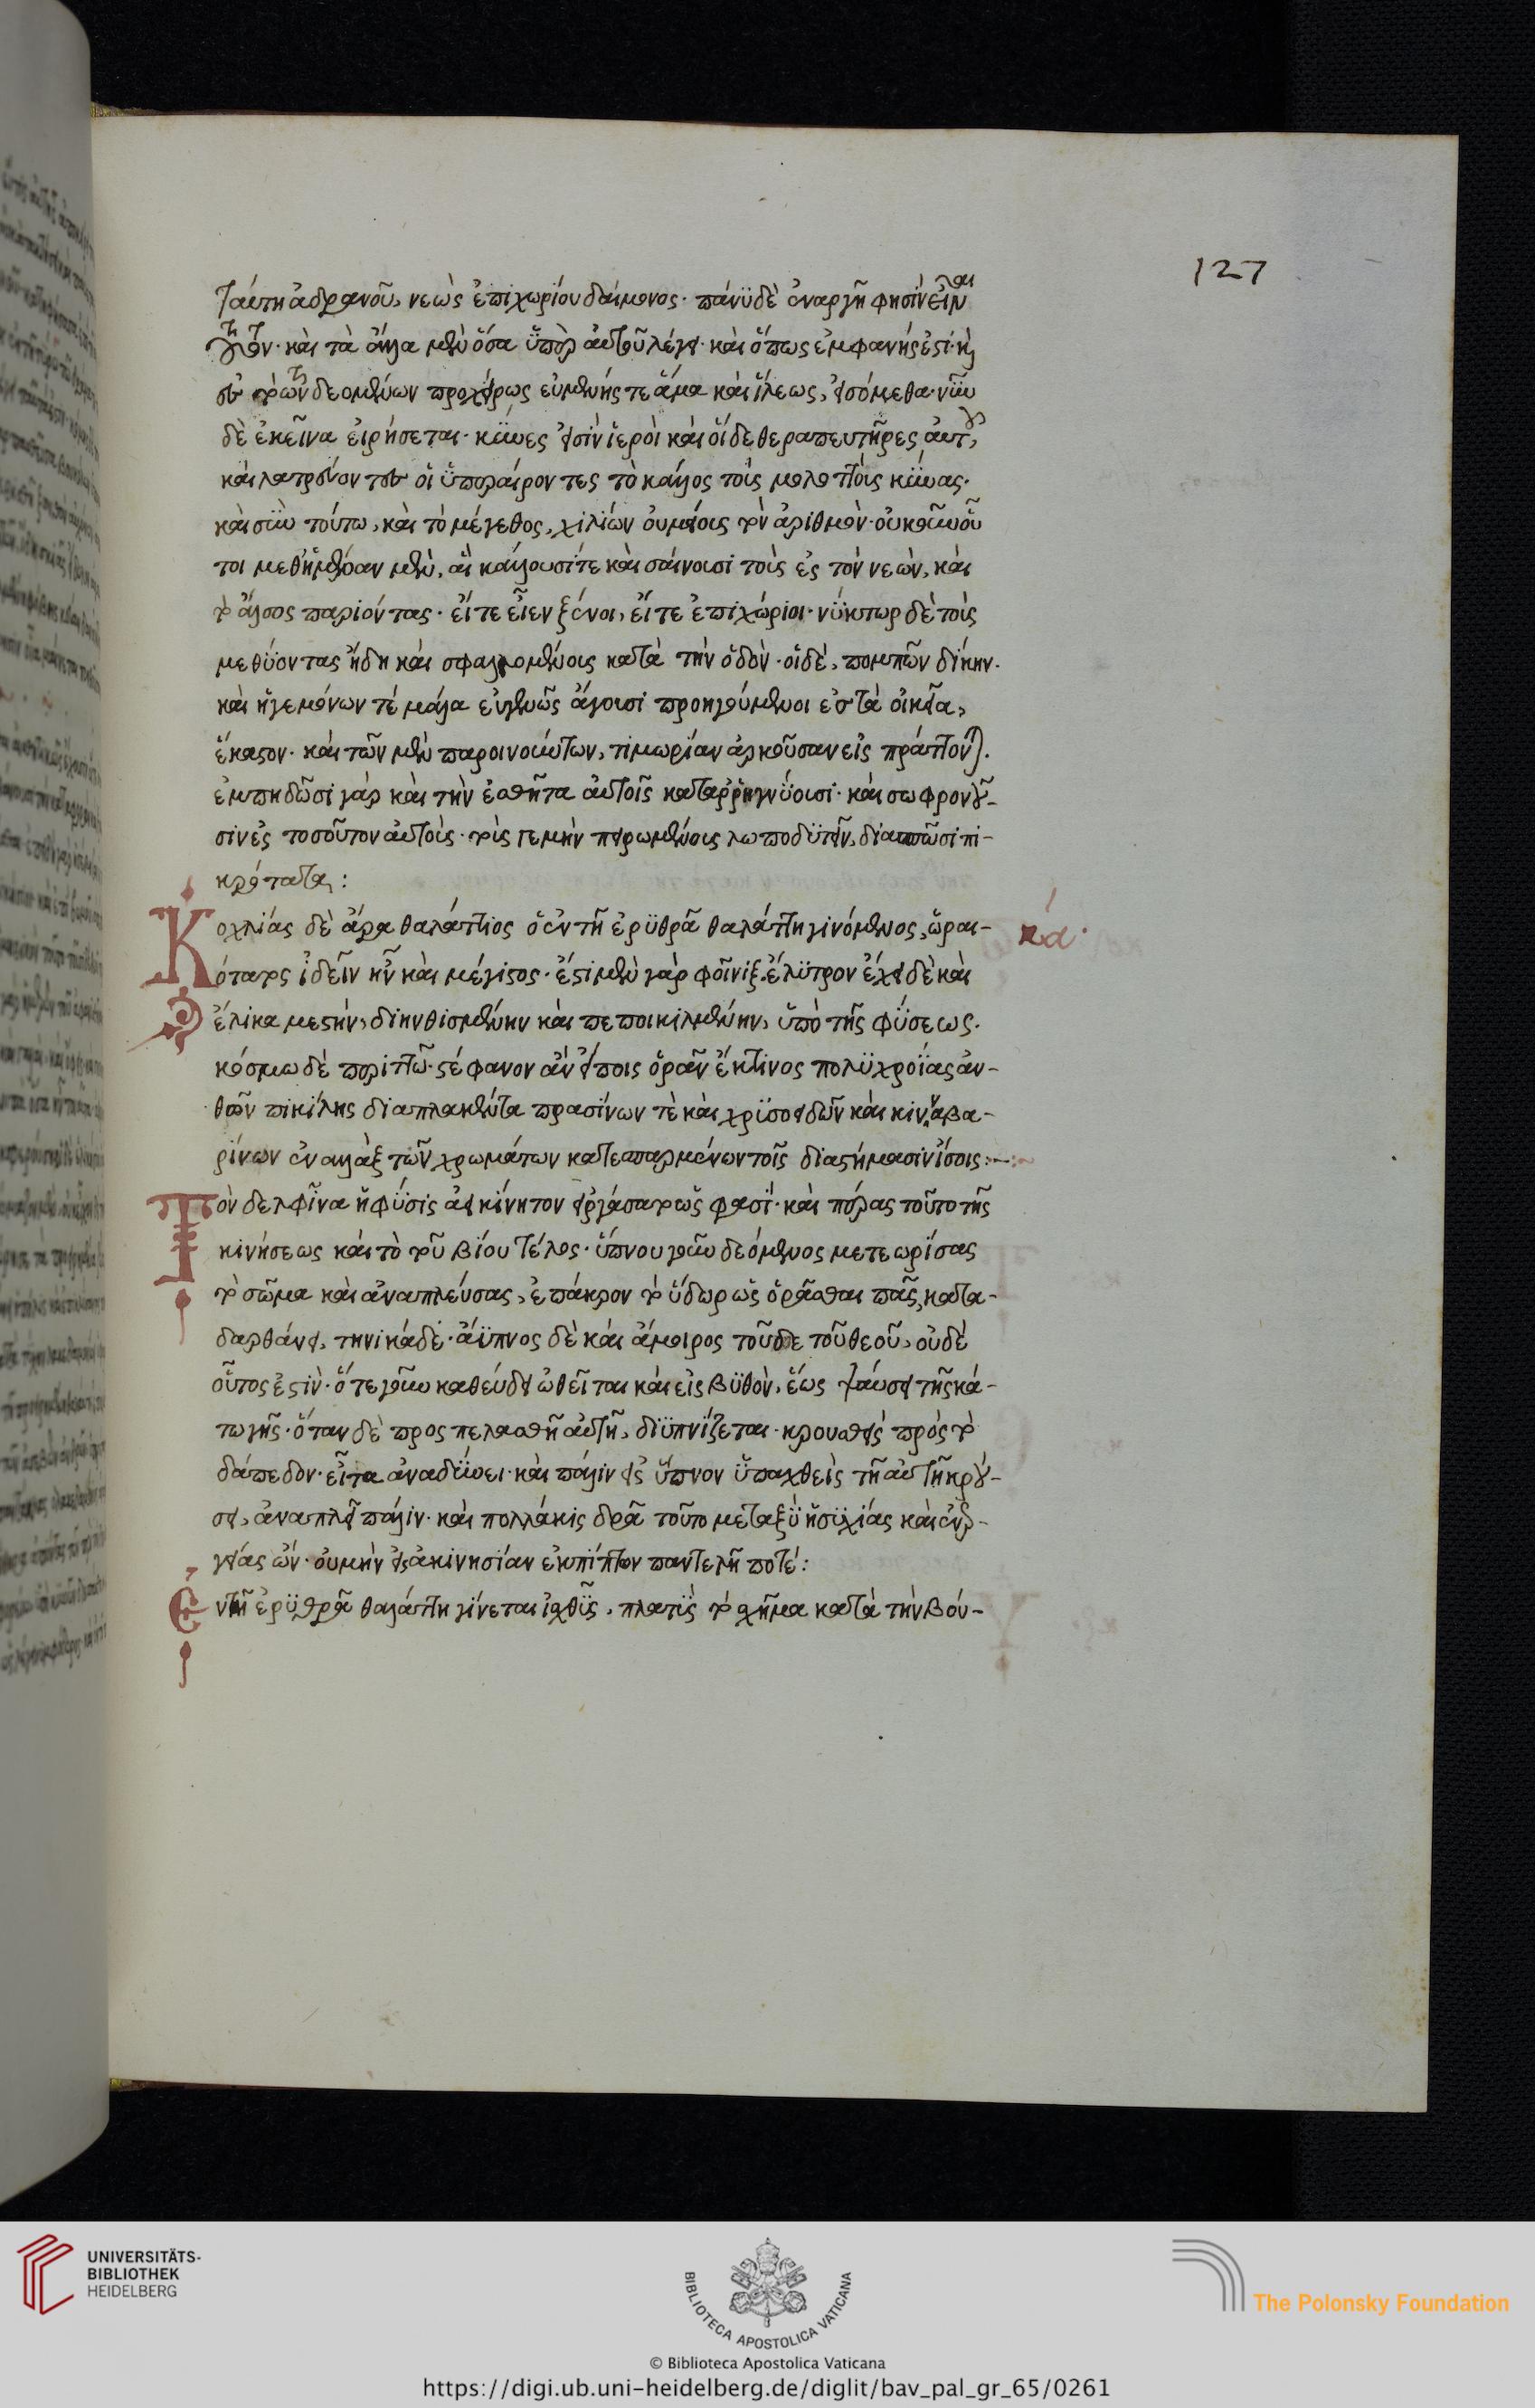 127
ταύτη ἀδρανοῦ, νεὼς ἐπιχωρίου δαίμονος· πάνυ δὲ ἐναργῆ φησὶν εἶναι
τοῦτον· καὶ τὰ ἄλλα μὲν ὅσα ὑπὲρ αὐτοῦ λέγει· καὶ ὅπως ἐμφανής ἐστι· καὶ
ἐς τοὺς τῶν δεομένων προχείρως εὐμενής τε ἅμα καὶ ἵλεως, εἰσόμεθα· νῦν
δὲ ἐκεῖνα εἰρήσεται· κύνες εἰσὶν ἱεροὶ καὶ οἵδε θεραπευτῆρες αὐτοῦ,
καὶ λατρεύοντες οἱ ὑπεραίροντες τὸ κάλλος τοὺς μολοττοὺς κύνας·
καὶ σὺν τούτω, καὶ τὸ μέγεθος, χιλίων οὐ μείους τὸν ἀριθμὸν· οὐκοῦν οὗ
τοι μεθ' ἡμέραν μὲν, αἰκάλλουσί τε καὶ σαίνουσι τοὺς ἐς τὸν νεὼν, καὶ
τὸ ἄλσος παριόντας· εἴτε εἶεν ξένοι, εἴτε ἐπιχώριοι· νύκτωρ δὲ τοὺς
μεθύοντας ἤδη καὶ σφαλλομένους κατὰ τὴν ὁδὸν· οἵδε, πομπῶν δίκην·
καὶ ἡγεμόνων τέ μάλα εὐμενῶς ἄγουσι προηγούμενοι ἐς τὰ οἰκεῖα,
ἕκαστον· καὶ τῶν μὲν παροινούντων, τιμωρίαν ἀρκοῦσαν εἰσπράττονται·
ἐμπηδῶσι γὰρ καὶ τὴν ἐσθῆτα αὐτοῖς καταρρηγνύουσι· καὶ σωφρονοῦ-
σιν ἐς τοσοῦτον αὐτοὺς· τούς γε μὴν πειρωμένους λωποδυτεῖν, διασπῶσι πι-
κρότατα:
Κοχλίας δὲ ἄρα θαλάττιος ὁ ἐν τῆ ἐρυθρᾶ θαλάττη γινόμενος, ὡραι-
κά·
ότατος ἰδεῖν ἦν καὶ μέγιστος· ἔστι μὲν γὰρ φοῖνιξ· ἔλυτρον ἔχει δὲ καὶ
ἕλικα μεστὴν, διηνθισμένην καὶ πεποικιλμένην, ὑπὸ τῆς φύσεως·
κόσμω δὲ περιττῶ· στέφανον ἂν εἴποις ὁρᾶν ἔκ τινος πολυχροΐας ἀν-
θῶν πικίλης διαπλακέντα πρασίνων τὲ καὶ χρυσοειδῶν καὶ κινναβα-
ρίνων ἐναλλὰξ τῶν χρωμάτων κατεσπαρμένων τοῖς διαστήμασιν ἴσοις:
Τὸν δελφῖνα ἡ φύσις ἀεικίνητον εἰργάσατο ὥς φασί· καὶ πέρας τοῦτο τῆς
κινήσεως καὶ τὸ τοῦ βίου τέλος· ὕπνου γοῦν δεόμενος μετεωρίσας
τὸ σῶμα καὶ ἀναπλεύσας, ἐπάκρον τὸ ὕδωρ ὡς ὁρᾶσθαι πᾶς, κατα-
δαρθάνει, τηνικάδε· ἄϋπνος δὲ καὶ ἄμοιρος τοῦδε τοῦ θεοῦ, οὐδέ
οὗτος ἐστὶν· ὅτε γοῦν καθεύδει ὠθεῖται καὶ εἰς βυθὸν, ἕως ψαύσει τῆς κά-
τω γῆς· ὅταν δὲ προσπελασθῆ αὐτῆ, διϋπνίζεται· κρουσθεὶς πρὸς τὸ
δάπεδον· εἶτα ἀναδύσει· καὶ πάλιν εἰς ὕπνον ὑπαχθεὶς τῆ αὐτῆ κρού-
σει, ἀναπλεῖ πάλιν· καὶ πολλάκις δρᾶ τοῦτο μεταξὺ ἡσυχίας καὶ ἐνερ-
γείας ὤν· οὐ μὴν εἰς ἀκινησίαν ἐκπίπτων παντελῆ ποτέ:
Ἐν τῆ ἐρυθρᾶ θαλάττη γίνεται ἰχθῦς, πλατὺς τὸ σχῆμα κατὰ τὴν βού-
UNIVERSITÄTS-
BIBLIOTHEK
HEIDELBERG
BIBLIOTECA APOSTOLICA VATICANA
© Biblioteca Apostolica Vaticana
The Polonsky Foundation
https://digi.ub.uni-heidelberg.de/diglit/bav_pal_gr_65/0261